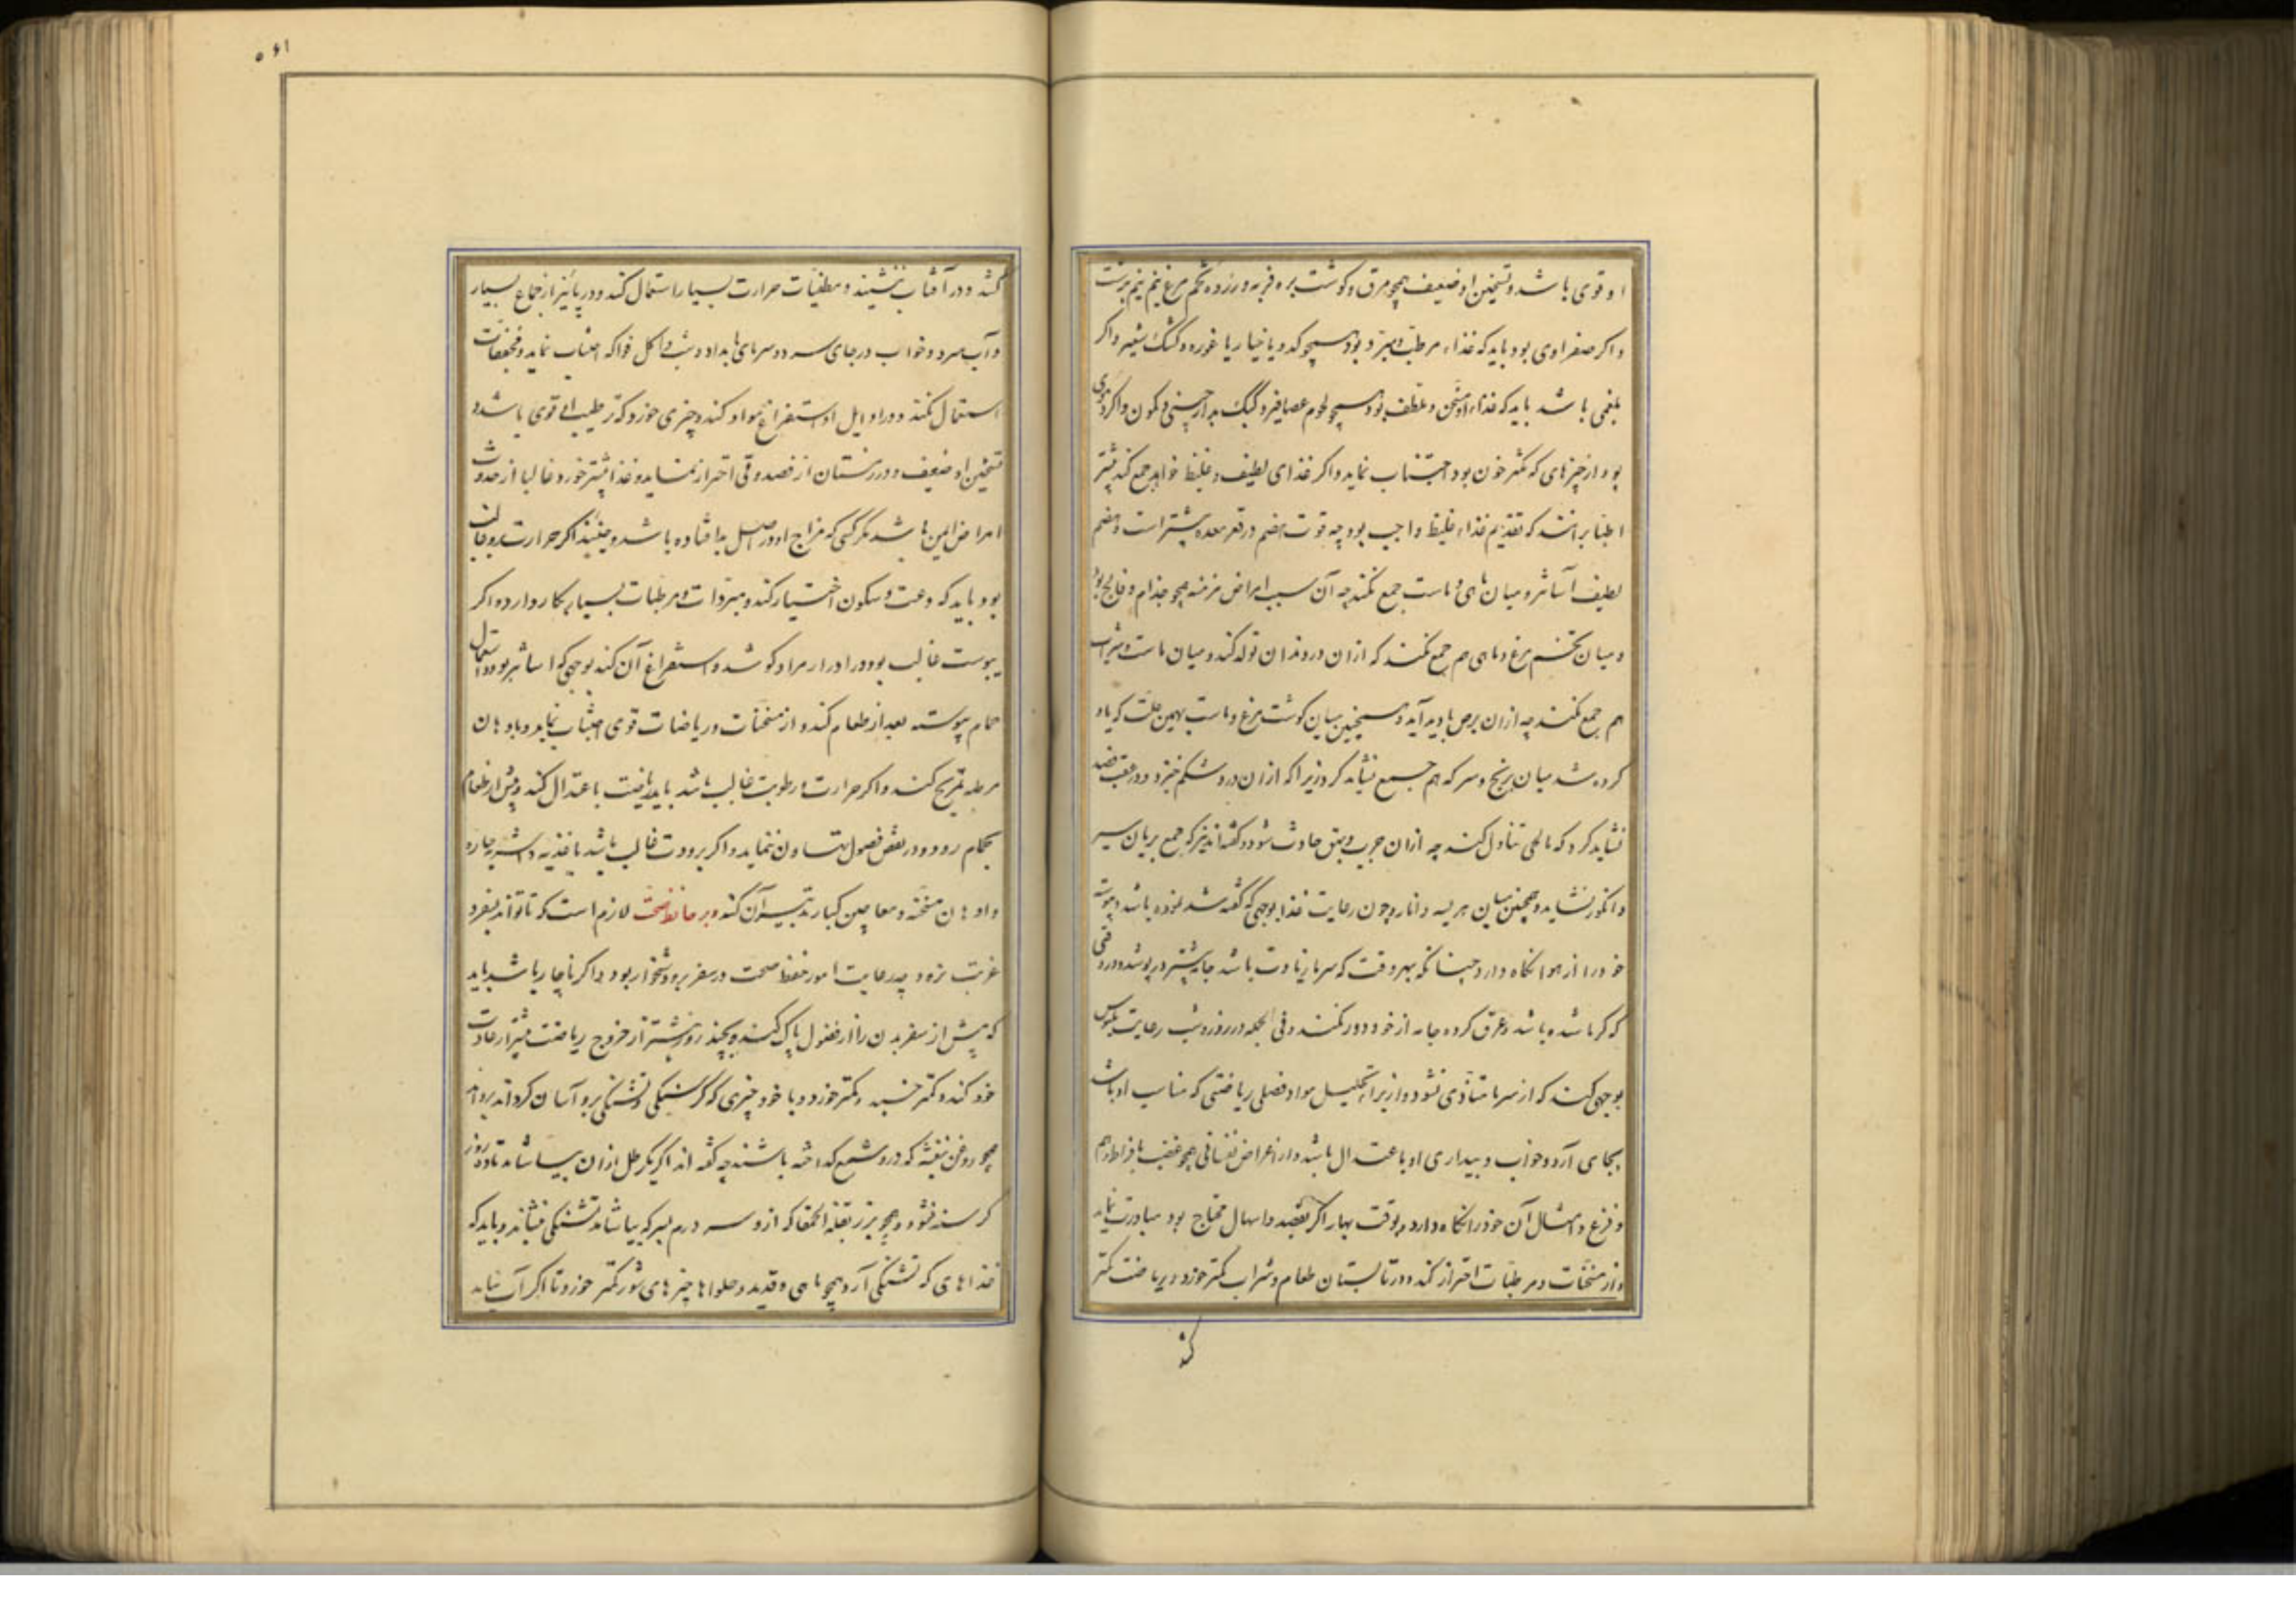 او قوی باشد و تسخین او ضعیف همچو مرق و گوشت بره فربه و زرده تخم مرغ نیم برشت
واکر صفراوی بود باید که غذاء مرطب و مبرد بود همچو کدو یا خیار یا غوره و کشک شعیر واکر
بلغمی باشد باید که غذاء او مسخن و ملطف بود همچو لحوم عصافیر و کبک بدارچینی و کمون واکر دموی
بود از چیزهای که مکثر خون بود اجتناب نماید واکر غذای لطیف و غلیظ خواهد جمع کند بیشتر
اطبا برانند که تقدیم غذاء غلیظ واجب بود چه قوت هضم در قعر معده بیشتر است و هضم
لطیف آسانتر و میان ماهی و ماست جمع نکند چه آن سبب امراض مزمنه همچو جذام و فالج بود
و میان تخم مرغ و ماهی هم جمع نکند که ازان درد دندان تولد کند و میان ماست و شراب
هم جمع نکند چه ازان برص بادید آید و همچنین میان کوشت مرغ و ماست بهمین علت که یاد
کرده شد میان برنج و سرکه هم جمع نشاید کرد زیرا که ازان درد شکم خیزد و در عقب فصد
نشاید کرد که مالحی تناول کند چه ازان جرب و بهق حادث شود و کفته‌اند نیز که جمع بریان سیر
وانکور نشاید و همچنین میان هریسه و انار و چون رعایت غذا بوجهی که گفته شد نموده باشد پیوسته
خود را از هوا نکاه دارد چنانکه بهر وقت که سرما زیادت باشد جامه بیشتر در پوشد و در وقتی
که گرما شده باشد و عرق کرده جامه از خود دور نکند و فی الجمله در روز و شب رعایت ملبوس
بوجهی کند که از سرما متاذی نشود و از برای تحلیل مواد فضلی ریاضتی که مناسب او باشد
بجای آرد و خواب و بیداری او باعتدال باشد و از اعراض نفسانی همچو غضب بافراط و هم
و فزع و امثال آن خود را نکاه دارد و بوقت بهار اکر بفصد و اسهال محتاج بود مبادرت نماید
و از مسخنات و مرطبات احتراز کند و در تابستان طعام و شراب کمتر خورد و ریاضت کمتر
کند
۵۶۱
کند و در آفتاب ننشیند و مطفیات حرارت بسیار استعمال کند و در پائیز از جماع بسیار
و آب سرد و خواب در جای سرد و سرمای بامداد و شب و اکل فواکه اجتناب نماید و مجففات
استعمال نکند و در اوایل او استفراغ مواد کند و چیزی خورد که ترطیب او قوی باشد و
تسخین او ضعیف و در زمستان از فصد و قی احتراز نماید و غذا بیشتر خورد و غالبا از حدوث
امراض ایمن باشد مکر کسی که مزاج او در اصل بد افتاده باشد و حینئذ اکر حرارت برو غالب
بود باید که دعت و سکون اختیار کند و مبردات و مرطبات بسیار بکار دارد و اکر
یبوست غالب بود در ادرار مراد کوشد و استفراغ آن کند بوجهی که آسانتر بود و استعمال
حمام پیوسته بعد از طعام کند و از مسخنات و ریاضات قوی اجتناب نماید و بادهان
مرطبه تمریخ کند و اکر حرارت و رطوبت غالب باشد باید ریاضت باعتدال کند و پیش از طعام
بحمام رود و در نقض فضول تهاون ننماید و اکر برودت غالب باشد باغذیه و اشربه حاره
و ادهان مسخنه و معاجین کبار تدبیر آن کند و بر حافظ صحت لازم است که تا تواند بسفر و
غربت نرود چه رعایت امور حفظ صحت در سفر برو دشخوار بود و اکر ناچار باشد باید
که پیش از سفر بدن را از فضول پاک کند و بچند روز پیشتر از خروج ریاضت بیشتر از عادت
خود کند و کمتر خسبد و کمتر خورد و با خود چیزی که کرسنکی و تشنکی برو آسان کرداند بردارد
همچو روغن بنفشه که در و شمع کداخته باشند چه کفته اند اکر یک رطل ازان بیاشامد تا ده روز
کرسنه نشود و همچو بزر بقلة الحمقا که ازو سه درم بسرکه بیاشامد تشنکی بنشاند و باید که
غذاهای که تشنکی آرد همچو ماهی و قدید و حلواها و چیزهای شور کمتر خورد تا اکر آب نیابد